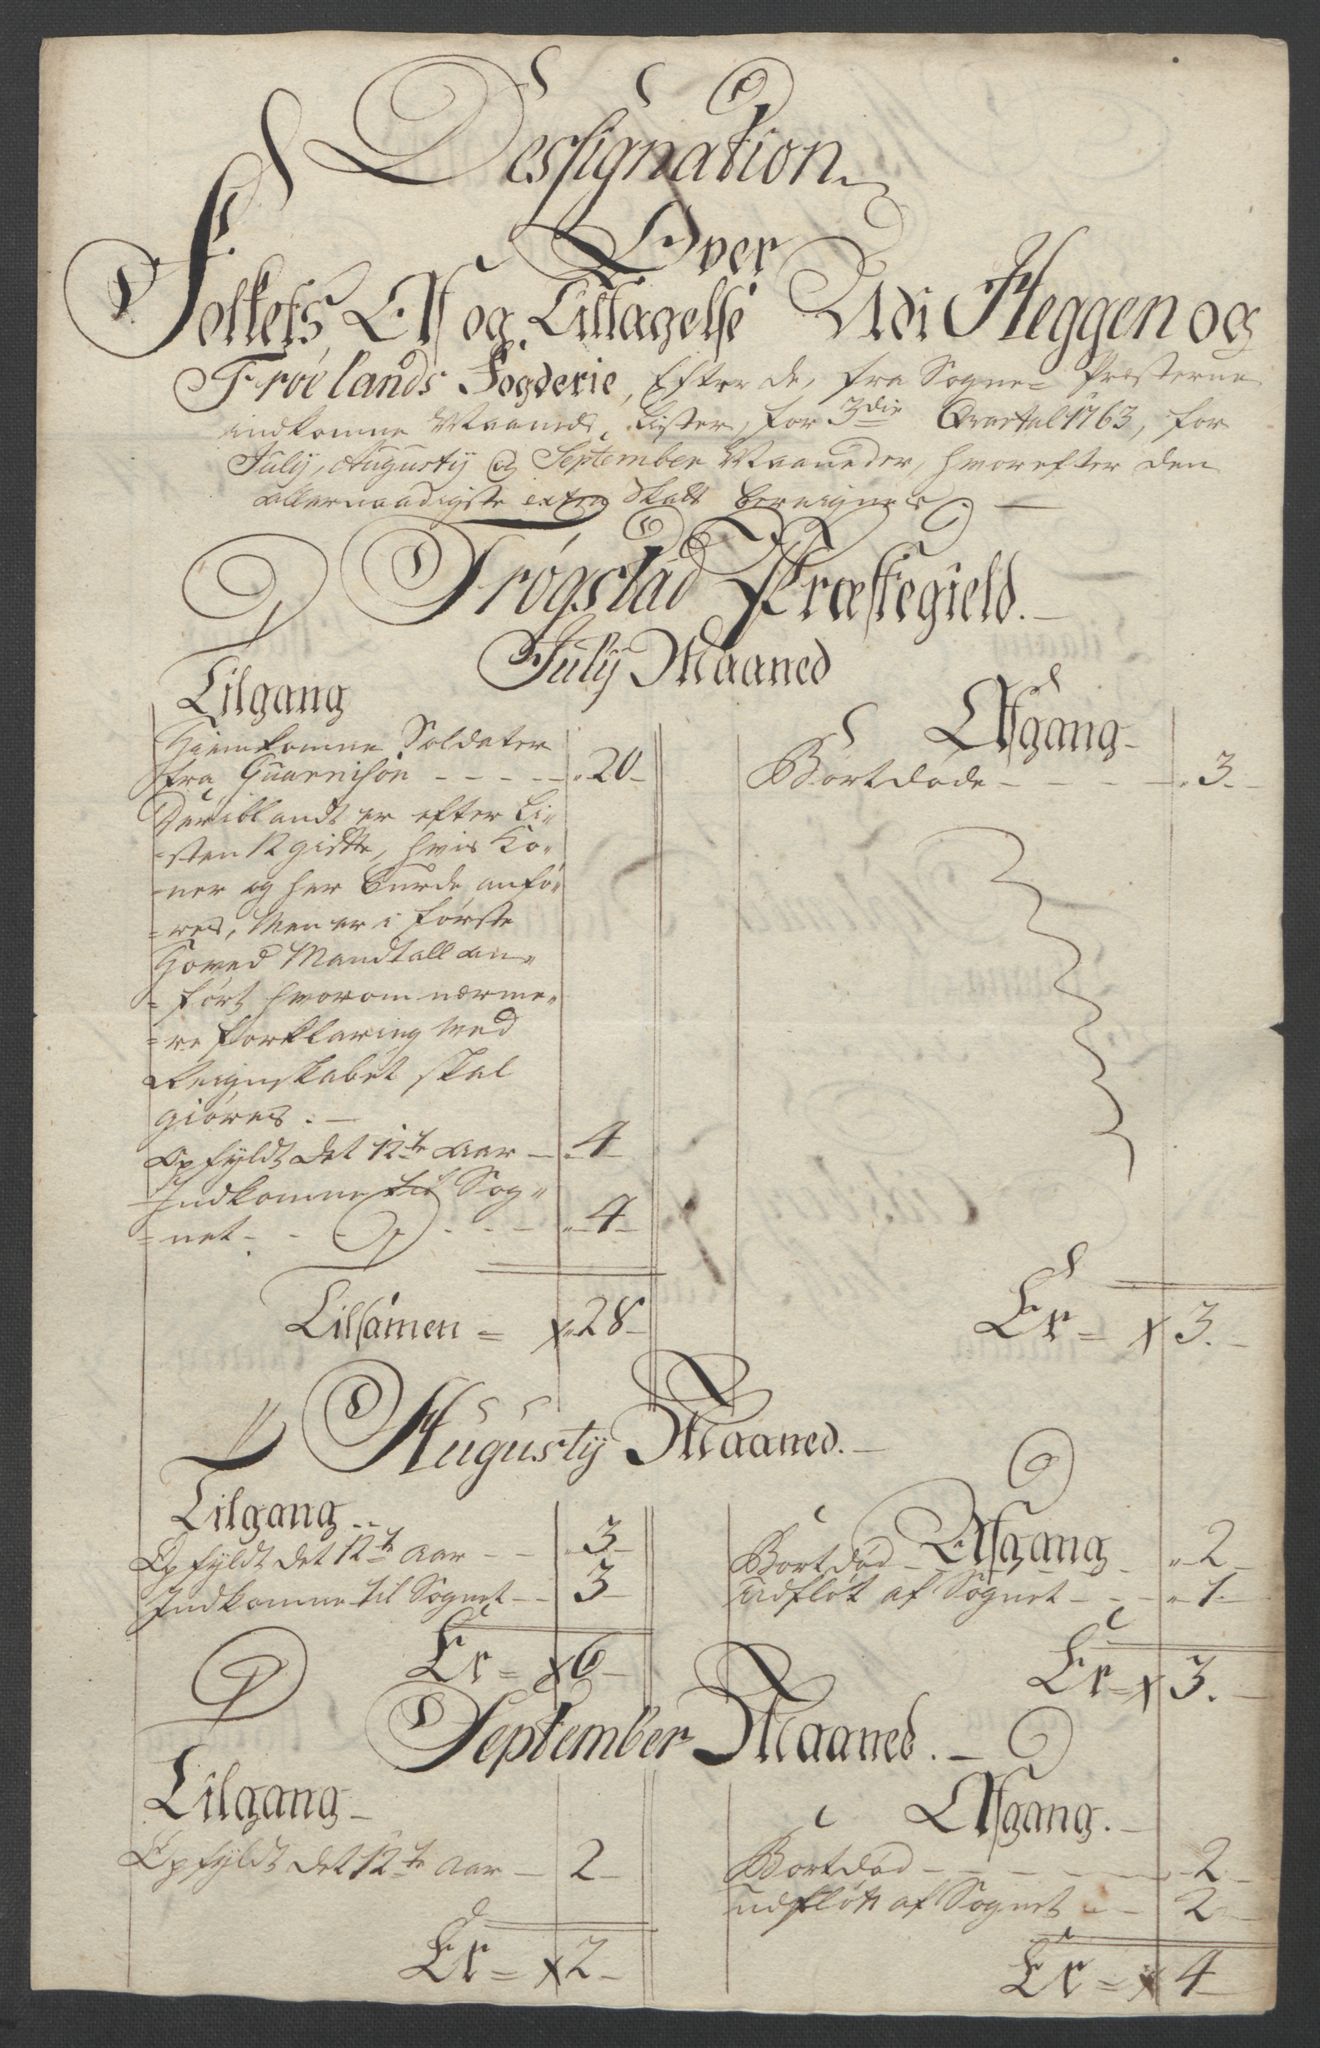 Dessignation
Over
Folkets Af og Tilltagelse Udi Heggen og
Frøelands Fogderie, Efter de, fra Sogne= Præsterne
indkomne Maaneds Lister, for 3die Qvartal 1763, for
July, Augusty og September Maaneder, hvorefter den
allernaadigste extra Skatt bereignes. —
Trøgstad Præstegield. —
July Maaned
Tilgang
Hiemkomne Soldater
fra Guarnison - - - - - „20 —
Deriblandt er efter Li-
-sten 12 gifte, hvis Ko-
-ner og her burde anfø-
-res, Men er i første
Hoved Mandtall an-
-ført hvorom nærme-
-re forklaring med
Reignskabet skal
giøres. —
Opfyldt det 12te Aar — „4
Indkomne til Sog-
-net - - - - - „4 —
Tilsamen = x „28 —
Afgang —
Bortdøde - - - - „3. —
Er = x 3. —
Augusty Maaned. —
Tilgang —
Opfyldt det 12te Aar - - „3 —
Indkomne til Sognet - - 3 —
Er = x 6 —
Afgang
Bortdød - - - „2 —
Udfløt af Sognet - - - „1. —
Er = x 3. —
September Maaned. —
Tilgang —
Opfyldt det 12te Aar — 2 —
Er = x 2 —
Afgang. —
Bortdød - - - - - 2 —
udfløt af Sognet - - 2 —
Er = x 4 —